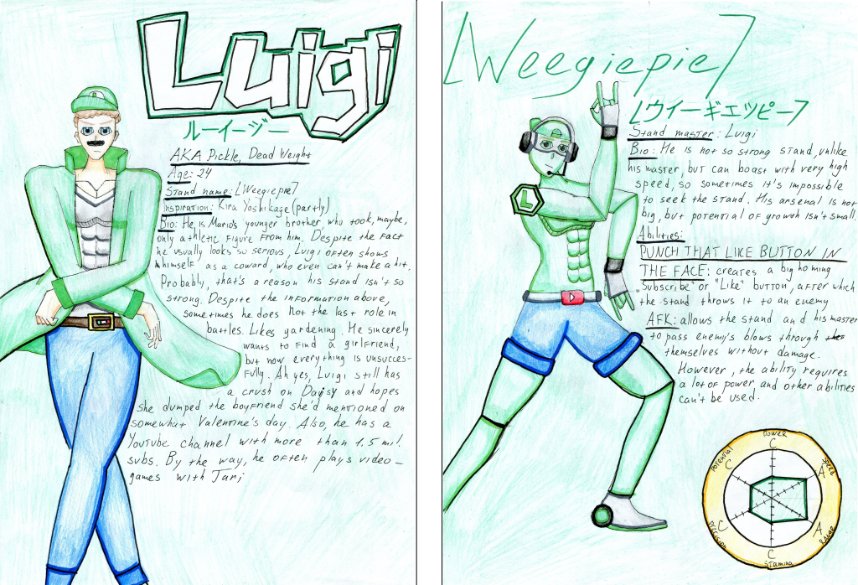 Luigi
ルーイージー
AKA Pickle, Dead Weight
Age: 24
Stand name: [Weegiepie]
Inspiration: Kira Yoshikage (partly)
Bio: He is Mario's younger brother, who took, maybe,
only athletic figure from him. Despite the fact
he usually looks so serious, Luigi often shows
himself as a coward, who even can't make a hit.
Probably, that's a reason his stand isn't so
strong. Despite the information above,
sometimes he does not the last role in
battles. Likes gardening. He sincerely
wants to find a girlfriend,
but now everything is unsucces-
fully. Ah yes, Luigi still has
a crush on Daisy and hopes
she dumped the boyfriend she'd mentioned on
somewhat Valentine's day. Also, he has a
Youtube channel with more than 1.5 mil.
subs. By the way, he often plays video-
games with Tari
[Weegiepie]
[ウイーギエッピー]
Stand master: Luigi
Bio: He is not so strong stand, unlike
his master, but can boast with very high
speed, so sometimes it's impossible
to seek the stand. His arsenal is not
big, but potential of growth isn't small
Abilities:
PUNCH THAT LIKE BUTTON IN
THE FACE: creates a big homing
"Subscribe" or "Like" button, after which
the stand throws it to an enemy
AFK: allows the stand and his master
to pass enemy's blows through
themselves without damage.
However, the ability requires
a lot of power and other abilities
can't be used.
L
Power
C
Potential
C
Speed
A
Precision
C
Range
A
C
Stamina